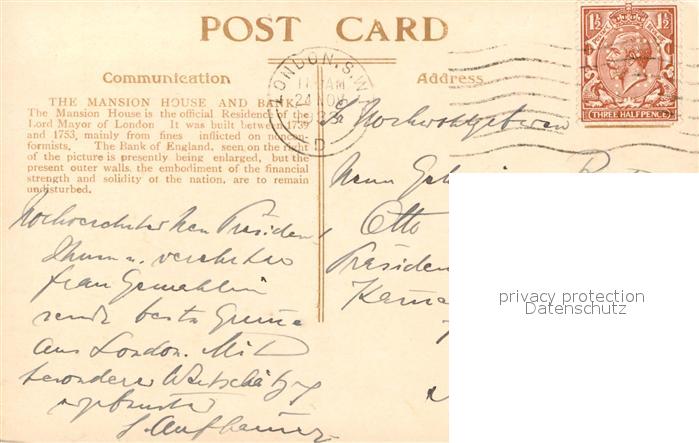 POST CARD
Communication
Address
THE MANSION HOUSE AND BANK.
The Mansion House is the official Residence of the
Lord Mayor of London It was built between 1739
and 1753, mainly from fines inflicted on noncon-
formists. The Bank of England, seen on the right
of the picture is presently being enlarged, but the
present outer walls, the embodiment of the financial
strength and solidity of the nation, are to remain
undisturbed.
LONDON. S.W.
11 AM
24 NOV
D
1½ 1½
THREE HALFPENCE
Sr Hochwohlgeboren
Herrn
Otto
Präsiden
Hochverehrter Herr Präsident
Ihnen u. verehrter
Frau Gemahlin
sende beste Grüsse
aus London. Mit
besonderer Wertschätzg
ergebenster
privacy protection
Datenschutz